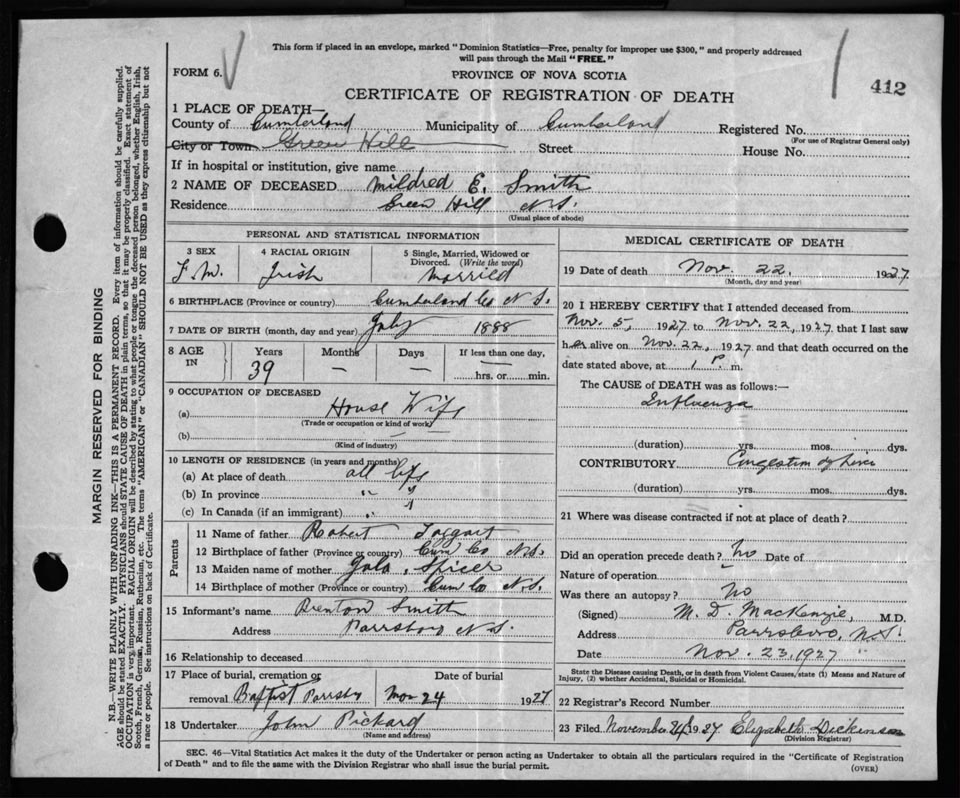 This form if placed in an envelope, marked "Dominion Statistics—Free, penalty for improper use $300," and properly addressed
will pass through the Mail "FREE."
FORM 6.
PROVINCE OF NOVA SCOTIA
412
CERTIFICATE OF REGISTRATION OF DEATH
1 PLACE OF DEATH—
County of Cumberland Municipality of Cumberland Registered No.
(For use of Registrar General only)
City or Town Green Hill Street House No.
If in hospital or institution, give name
2 NAME OF DECEASED Mildred E. Smith
Residence Green Hill N.S.
(Usual place of abode)
PERSONAL AND STATISTICAL INFORMATION
3 SEX 4 RACIAL ORIGIN 5 Single, Married, Widowed or
Divorced. (Write the word)
F.M. Irish Married
6 BIRTHPLACE (Province or country) Cumberland Co N.S.
7 DATE OF BIRTH (month, day and year) July 1888
8 AGE IN Years Months Days If less than one day,
39 — — hrs. or min.
9 OCCUPATION OF DECEASED
(a) House Wife
(Trade or occupation or kind of work)
(b)
(Kind of industry)
10 LENGTH OF RESIDENCE (in years and months)
(a) At place of death all life
(b) In province " "
(c) In Canada (if an immigrant) " "
Parents
11 Name of father Robert Taggart
12 Birthplace of father (Province or country) Cum Co N.S.
13 Maiden name of mother Spicer
14 Birthplace of mother (Province or country) Cum Co N.S.
15 Informant's name Prenton Smith
Address Parrsboro N.S.
16 Relationship to deceased
17 Place of burial, cremation or Date of burial
removal Baptist Parrsboro Nov 24 1927
18 Undertaker John Pickard
(Name and address)
MEDICAL CERTIFICATE OF DEATH
19 Date of death Nov. 22, 1927
(Month, day and year)
20 I HEREBY CERTIFY that I attended deceased from
Nov. 5, 1927 to Nov. 22, 1927, that I last saw
her alive on Nov. 22, 1927 and that death occurred on the
date stated above, at 1 P. m.
The CAUSE of DEATH was as follows:—
Influenza
(duration) yrs. mos. dys.
CONTRIBUTORY Congestion of liver
(duration) yrs. mos. dys.
21 Where was disease contracted if not at place of death?
Did an operation precede death? No Date of
Nature of operation
Was there an autopsy? No
(Signed) M. D. MacKenzie, M.D.
Address Parrsboro, N.S.
Date Nov. 23, 1927
State the Disease causing Death, or in death from Violent Causes, state (1) Means and Nature of
Injury, (2) whether Accidental, Suicidal or Homicidal.
22 Registrar's Record Number
23 Filed November 24 1927 Elizabeth Dickinson
(Division Registrar)
SEC. 46—Vital Statistics Act makes it the duty of the Undertaker or person acting as Undertaker to obtain all the particulars required in the "Certificate of Registration
of Death" and to file the same with the Division Registrar who shall issue the burial permit.
(OVER)
MARGIN RESERVED FOR BINDING
N.B.—WRITE PLAINLY WITH UNFADING INK—THIS IS A PERMANENT RECORD. Every item of information should be carefully supplied.
AGE should be stated EXACTLY. PHYSICIANS should STATE CAUSE OF DEATH in plain terms, so that it may be properly classified. Exact statement of
OCCUPATION is very important. RACIAL ORIGIN will be described by stating to what people or tongue the deceased person belonged, whether English, Irish,
Scotch, French, German, Russian, Ruthenian, etc. The terms "AMERICAN" or "CANADIAN" SHOULD NOT BE USED as they express citizenship but not
a race or people. See instructions on back of Certificate.